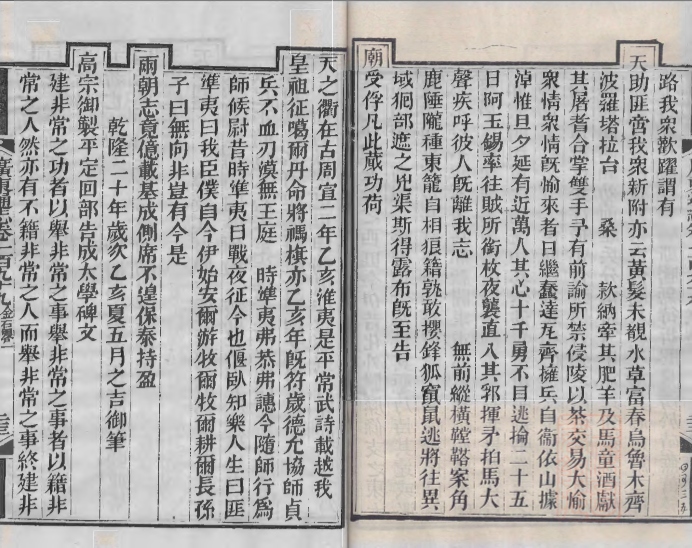 路我衆歡躍謂有
天助匪啻我衆新附亦云黃髮未覩水草富春烏魯木齊
波羅塔拉台　桑　款納牽其肥羊及馬童酒獻
其屠者合掌雙手予有前諭所禁侵陵以茶交易大愉
衆情衆情旣愉來者日繼蠢達瓦齊擁兵自衞依山據
淖惟旦夕延有近萬人其心十千勇不目逃掄二十五
曰阿玉錫率往賊所銜枚夜襲直入其郛揮矛拍馬大
聲疾呼彼人旣離我志　無前縱橫鞺鞳案角
鹿埵隴種東籠自相狼藉孰敢攖鋒狐竄鼠逃將往異
域徊部遮之兇渠斯得露布旣至告
廟受俘凡此蕆功荷
天之衢在古周宣二年乙亥淮夷是平常武詩載越我
皇祖征噶爾丹命將禡旗亦乙亥年旣符歲德允協師貞
兵不血刃漠無王庭　時準夷弗恭弗譓今隨師行爲
師候尉昔時準夷日戰夜征今也偃臥知樂人生曰匪
準夷曰我臣僕自今伊始安爾游牧爾牧爾耕爾長孫
子曰無向非豈有今是
兩朝志竟億載基成側席不遑保泰持盈
乾隆二十年歲次乙亥夏五月之吉御筆
高宗御製平定回部告成太學碑文
建非常之功者以舉非常之事舉非常之事者以藉非
常之人然亦有不藉非常之人而舉非常之事終建非
卷一百九十九金石畧一